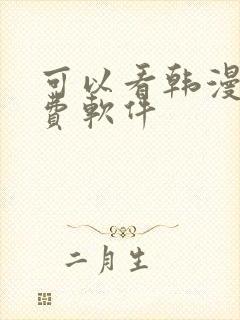 可以看韩漫
費軟件
二月生